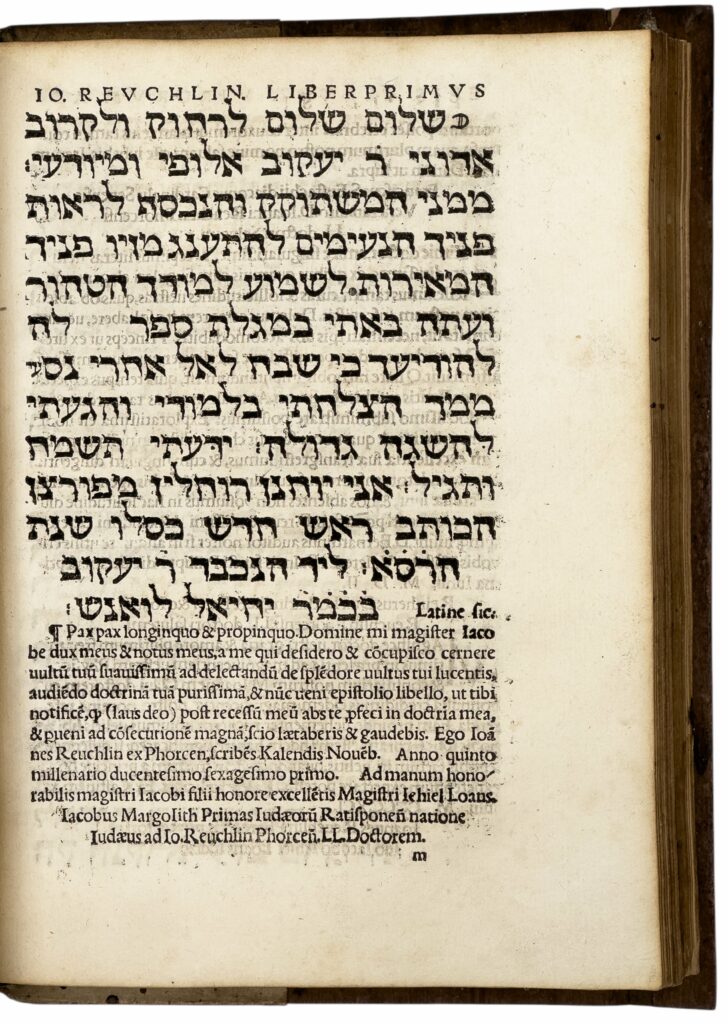 IO. REVCHLIN. LIBER PRIMVS
שלום שלום לרחוק ולקרוב
אדוני ר יעקוב אלופי ומיודעי:
ממני המשתוקק והנכסף לראות
פניך הנעימים להתענג מזיו פניך
המאירות לשמוע למודך הטהור
ועתה באתי במגלת ספר לה
להודיעך כי שבח לאל אחרי נסעי
ממך הצלחתי בלמודי והגעתי
להשגה גדולה: ידעתי תשמח
ותגיל: אני יוחנן רוחלין מפורצן
הכותב ראש חדש כסלו שנת
הרסא: ליד הנכבד ר יעקוב
בכמר יחיאל לואנש: Latine sic.
¶ Pax pax longinquo & propinquo. Domine mi magister Iaco
be dux meus & notus meus, a me qui desidero & cōcupisco cernere
uultū tuū suauissimū ad delectandū de splēdore uultus tui lucentis,
audiēdo doctrinā tuā purissimā, & nūc ueni epistolio libello, ut tibi
notificē, ꝙ (laus deo) post recessū meū abs te ꝓfeci in doctrīa mea,
& ꝑueni ad cōsecutionē magnā, scio lætaberis & gaudebis. Ego Ioā
nes Reuchlin ex Phorcen̄, scribēs Kalendis Nouēb. Anno quinto
millenario ducentesimo sexagesimo primo. Ad manum hono
rabilis magistri Iacobi filii honore excellētis Magistri Iehiel Loans.
Iacobus Margolith Primas Iudæorū Ratisponen̄ natione
Iudæus ad Io. Reuchlin Phorcen̄. LL. Doctorem.
m